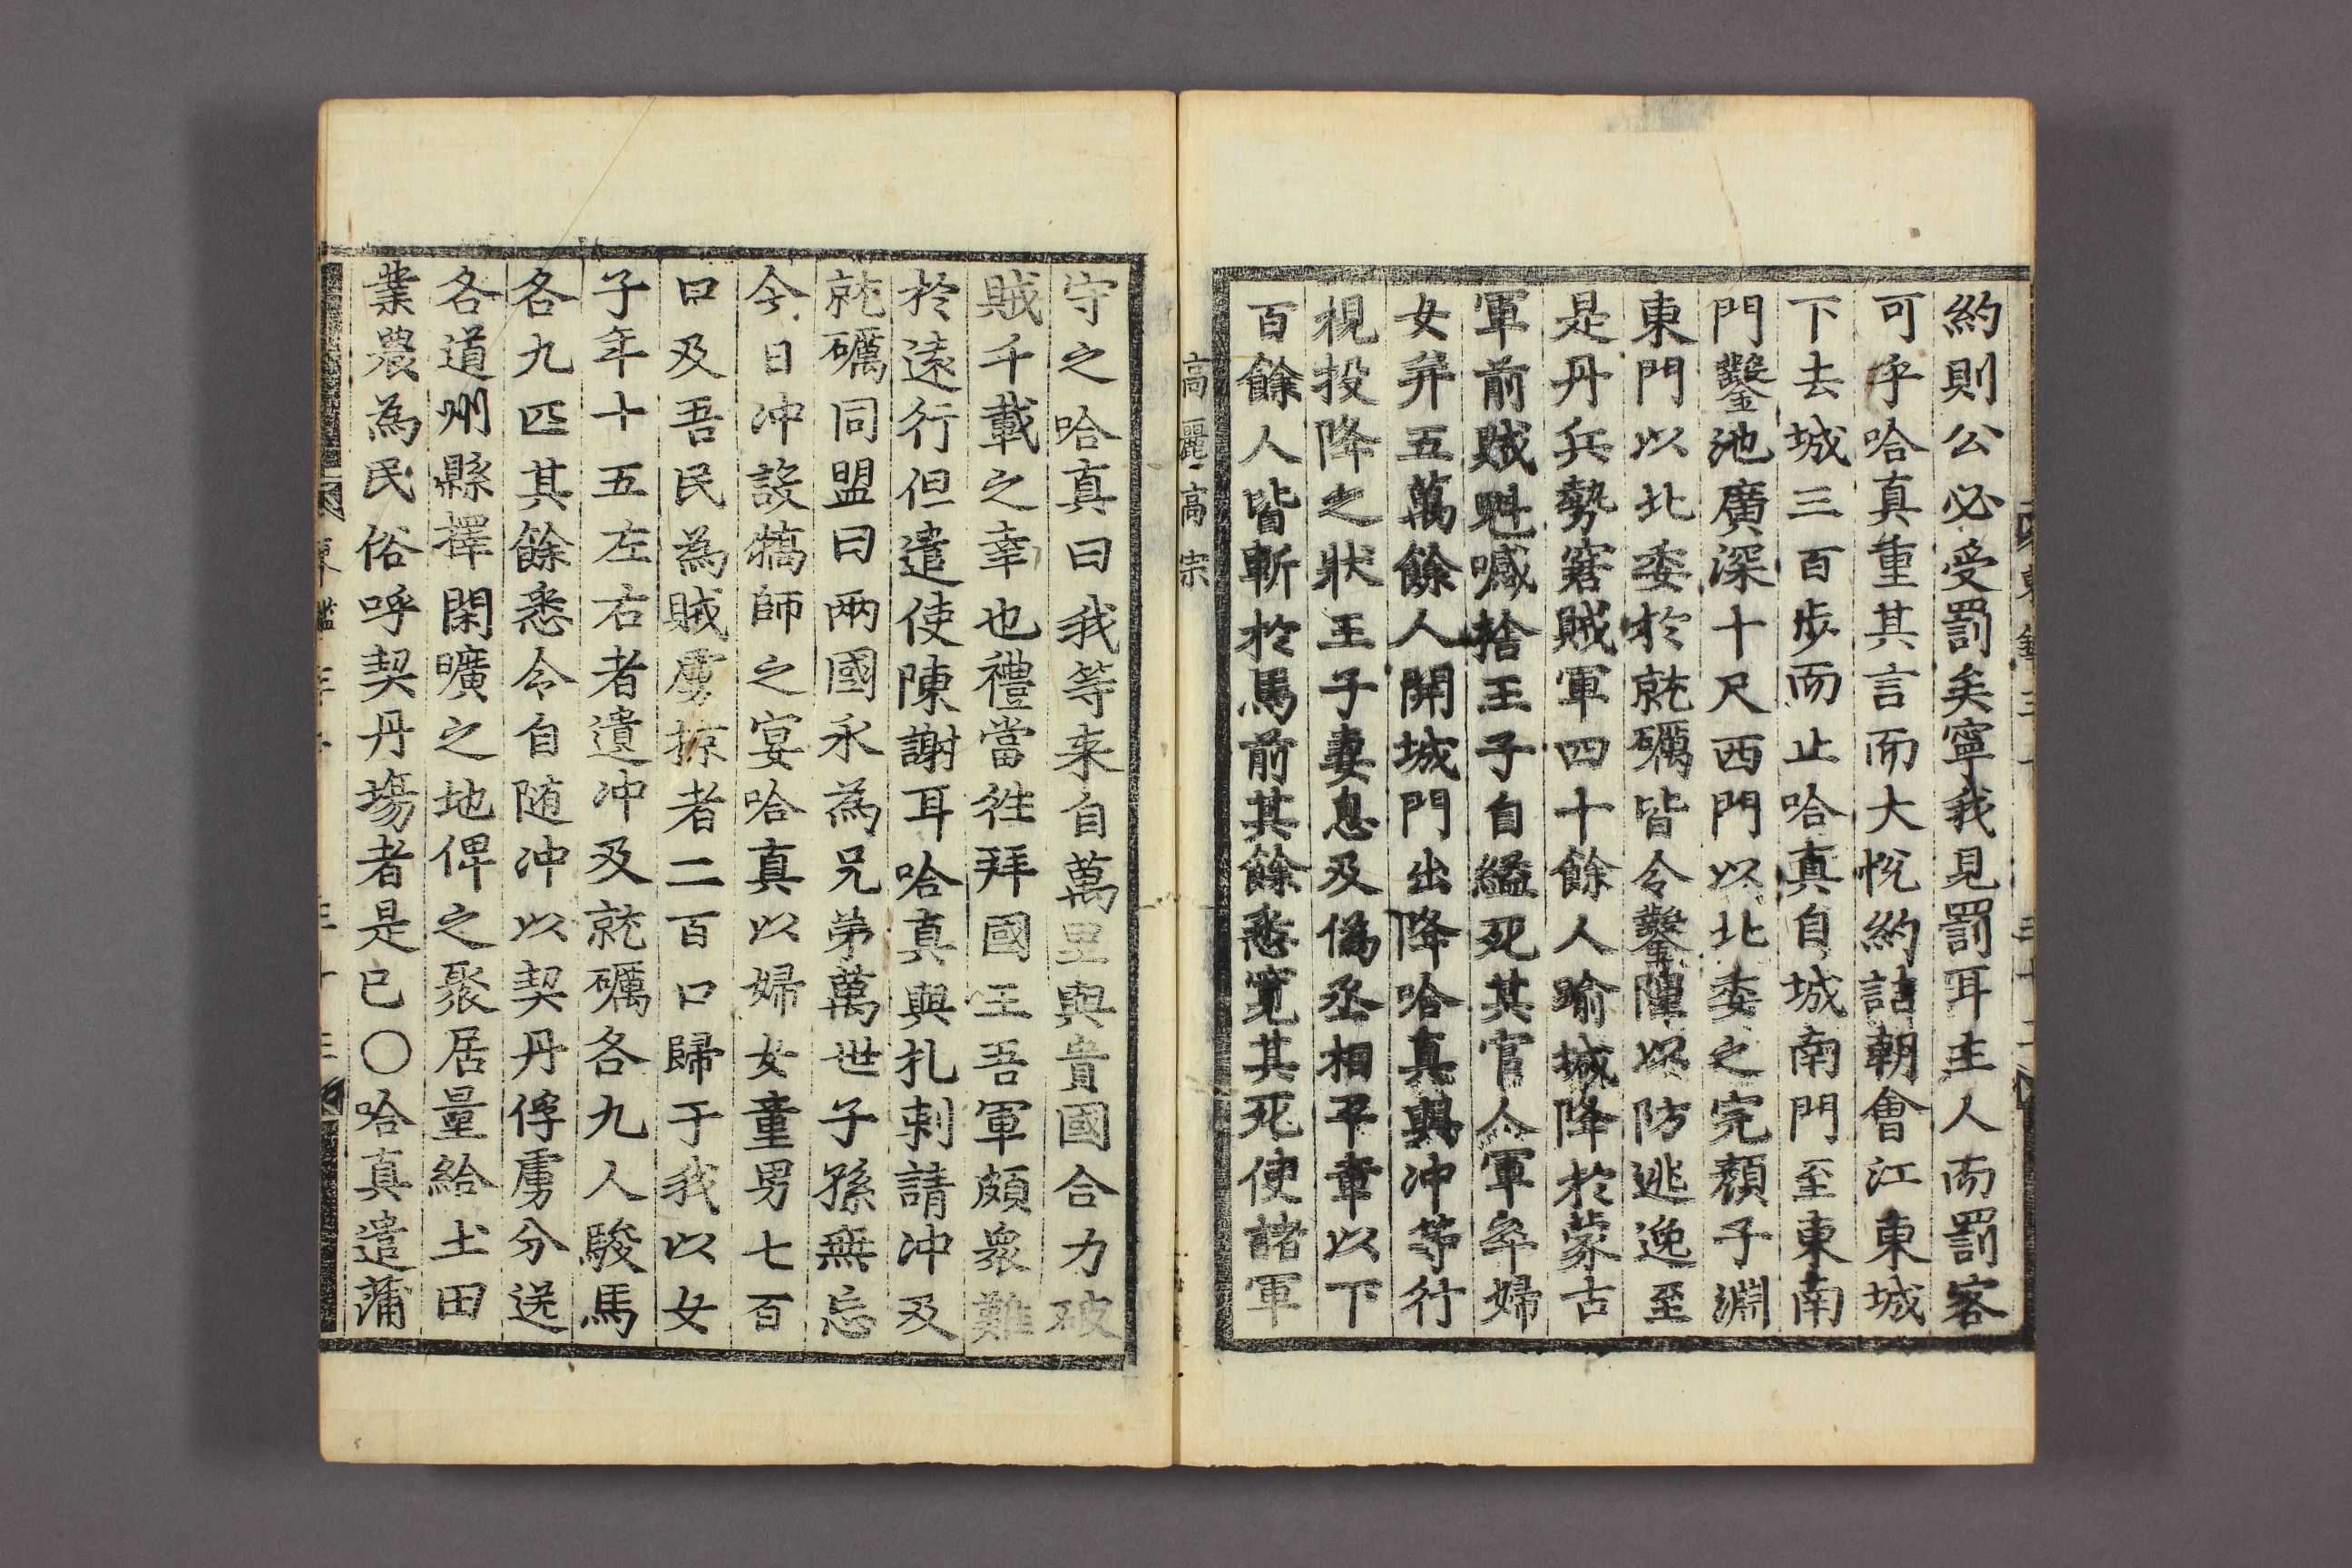 約則公必受罰矣寧我見罰耳主人而罰客
可乎哈真重其言而大悅約詰朝會江東城
下去城三百步而止哈真自城南門至東南
門鑿池廣深十尺西門以北委之完顏子淵
東門以北委於就礪皆令鑿隍以防逃逸至
是丹兵勢窘賊軍四十餘人踰城降於蒙古
軍前賊魁喊捨王子自縊死其官人軍卒婦
女幷五萬餘人開城門出降哈真與冲等行
視投降之狀王子妻息及僞丞相平章以下
百餘人皆斬於馬前其餘悉寬其死使諸軍
高麗高宗
守之哈真曰我等来自萬里與貴國合力破
賊千載之幸也禮當徃拜國王吾軍頗衆難
於遠行但遣使陳謝耳哈真與扎剌請冲及
就礪同盟曰兩國永為兄弟萬世子孫無忘
今日冲設犒師之宴哈真以婦女童男七百
口及吾民為賊虜掠者二百口歸于我以女
子年十五左右者遺冲及就礪各九人駿馬
各九匹其餘悉令自随冲以契丹俘虜分送
各道州縣擇閑曠之地俾之聚居量給土田
業農為民俗呼契丹場者是已〇哈真遣蒲